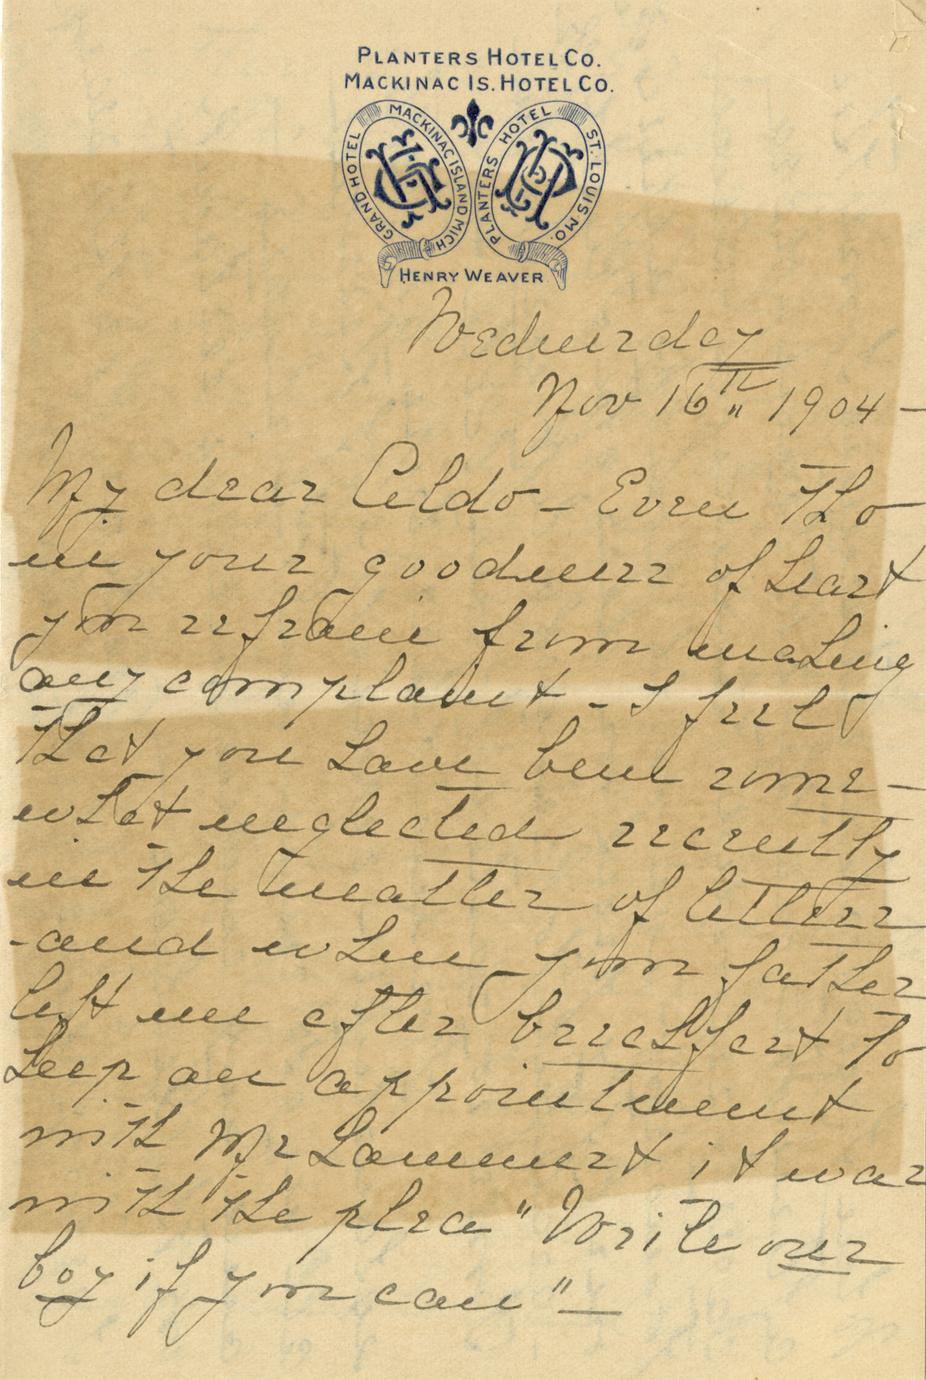 PLANTERS HOTEL CO.
MACKINAC IS. HOTEL CO.
GRAND HOTEL MACKINAC ISLAND MICH
PLANTERS HOTEL ST. LOUIS MO.
HENRY WEAVER
Wednesday
Nov 16th 1904 -
My dear Celdo - Even tho
in your goodness of heart
you refrain from making
any complaint - I feel
that you have been some-
what neglected recently
in the matter of letters
- and when your father
left me after breakfast to
keep an appointment
with Mr Lammert it was
with the plea "Write our
boy if you can" -